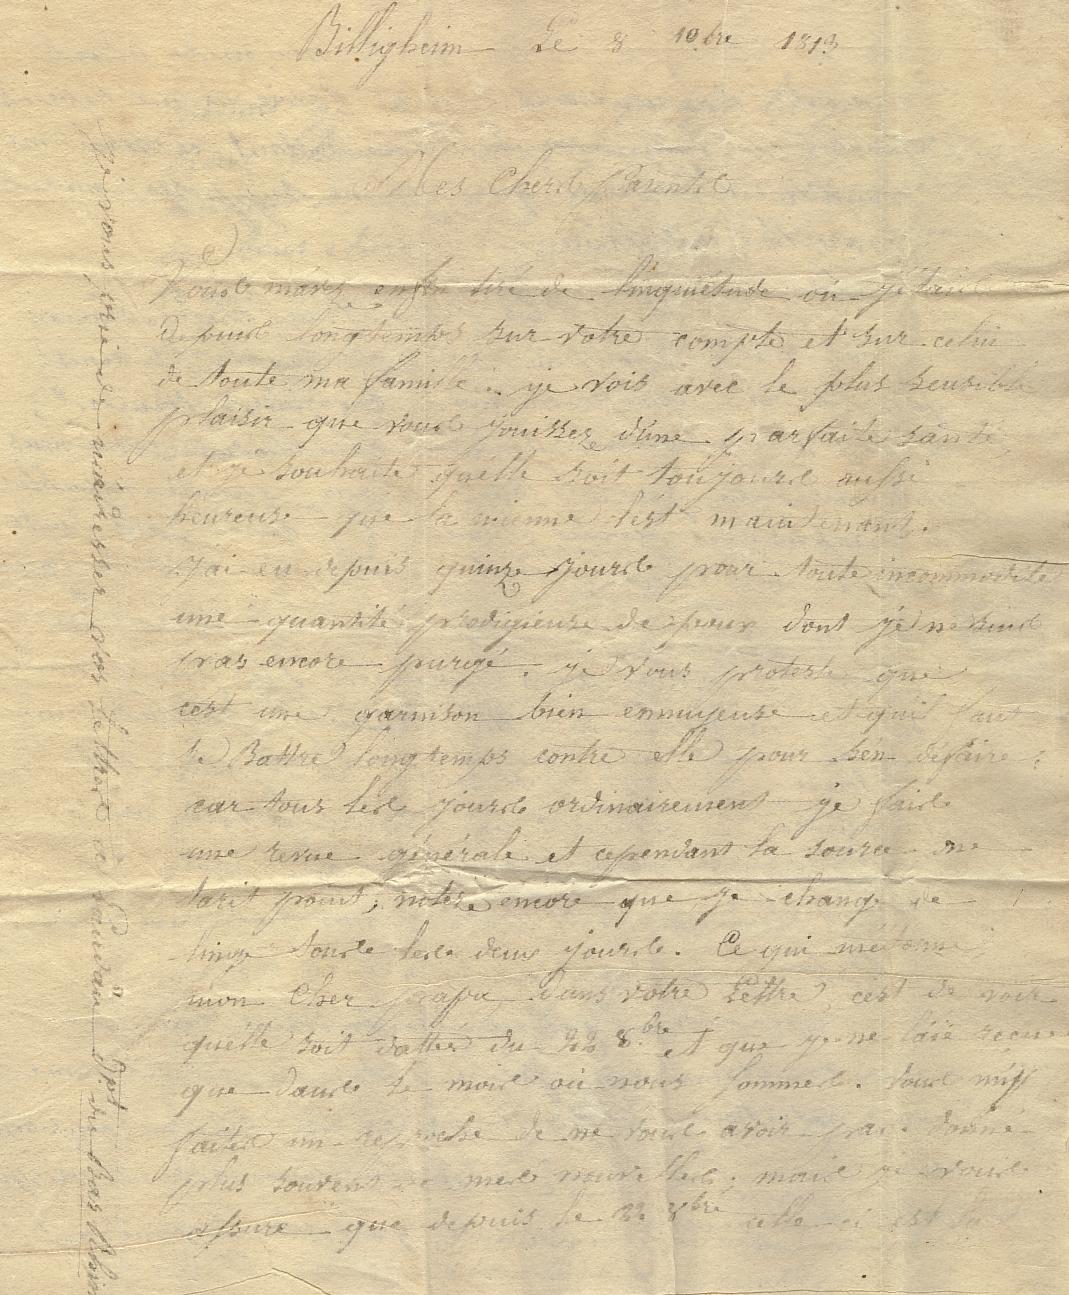 Billigheim Le 8 10bre 1813
Mes Chers Parents
Vous m'avez enfin tiré de l'inquiétude où j'étais
depuis longtemps sur votre compte et sur celui
de toute ma famille. je vois avec le plus sensible
plaisir que vous jouissez d'une parfaite santé
et je souhaite qu'elle soit toujours aussi
heureuse que la mienne l'est maintenant.
J'ai eu depuis quinze jours pour toute incommodité
une quantité prodigieuse de poux dont je ne suis
pas encore purgé. je vous proteste que
c'est une garnison bien ennuyeuse et qu'il faut
se Battre longtemps contre elle pour s'en défaire;
car tous les jours ordinairement je fais
une revue générale et cependant la source ne
tarit point; notez encore que je change de
linge tous les deux jours. Ce qui m'étonne
mon Cher papa, dans votre Lettre, c'est de voir
qu'elle soit dattée du 22 8bre et que je ne l'aie reçue
que dans le mois où nous sommes. Vous me
faites un reproche de ne vous avoir pas donné
plus souvent de mes nouvelles; mais je vous
assure que depuis le 22 8bre celle-ci est la
je vous prie de m'adresser vos lettres à Landau Dpt. du Bas Rhin